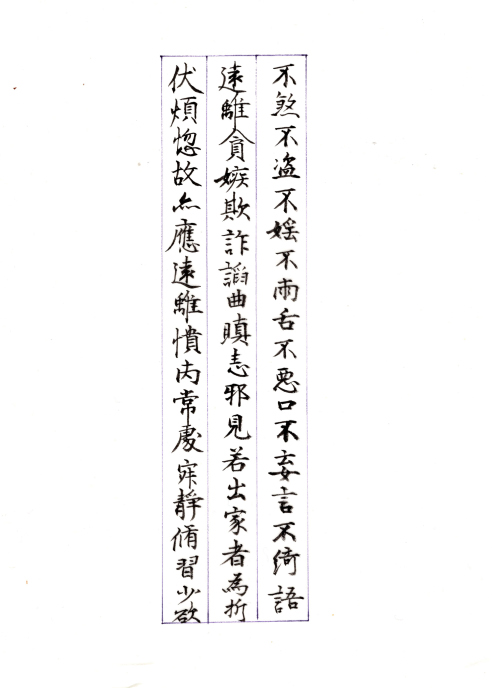 不煞不盗不婬不兩舌不惡口不妄言不綺語
遠離貪嫉欺詐諂曲瞋恚邪見若出家者為折
伏煩惱故亦應遠離憒丙常處寂靜脩習少欲